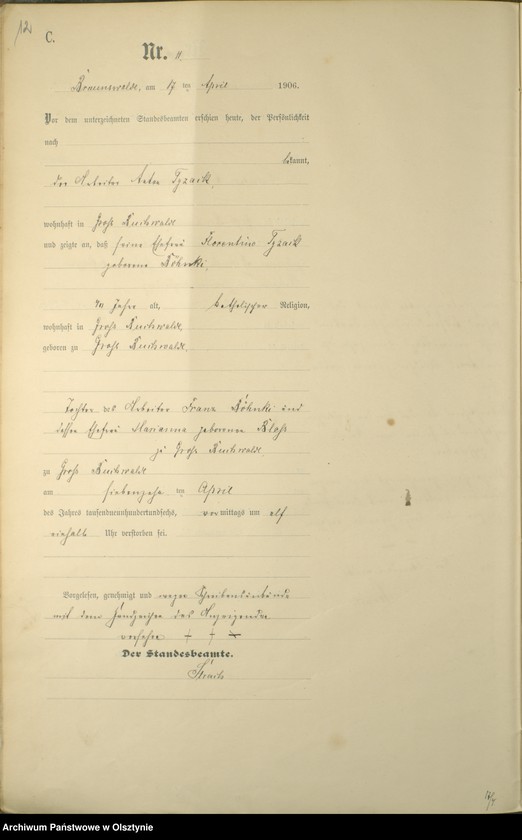 12
C.
Nr. 11.
Braunswalde, am 17 ten April 1906.
Vor dem unterzeichneten Standesbeamten erschien heute, der Persönlichkeit
nach
bekannt,
der Arbeiter
wohnhaft in Groß Buchwalde
und zeigte an, daß seine Ehefrau Florentine
geborene Böhnki,
Jahre alt, katholischer Religion,
wohnhaft in Groß Buchwalde
geboren zu Groß Buchwalde
Tochter des Arbeiter Franz Böhnki und
dessen Ehefrau Marianna geborenen Klost
zu Groß Buchwalde
zu Groß Buchwalde
am siebenzehn ten April
des Jahrs tausendneunhundertundsechs, vormittags um elf
einhalb Uhr verstorben sei.
Vorgelesen, genehmigt und wegen Schreibensunkunde
mit dem Handzeichen des Anzeigenden
versehen + + +
Der Standesbeamte.
Archiwum Państwowe w Olsztynie